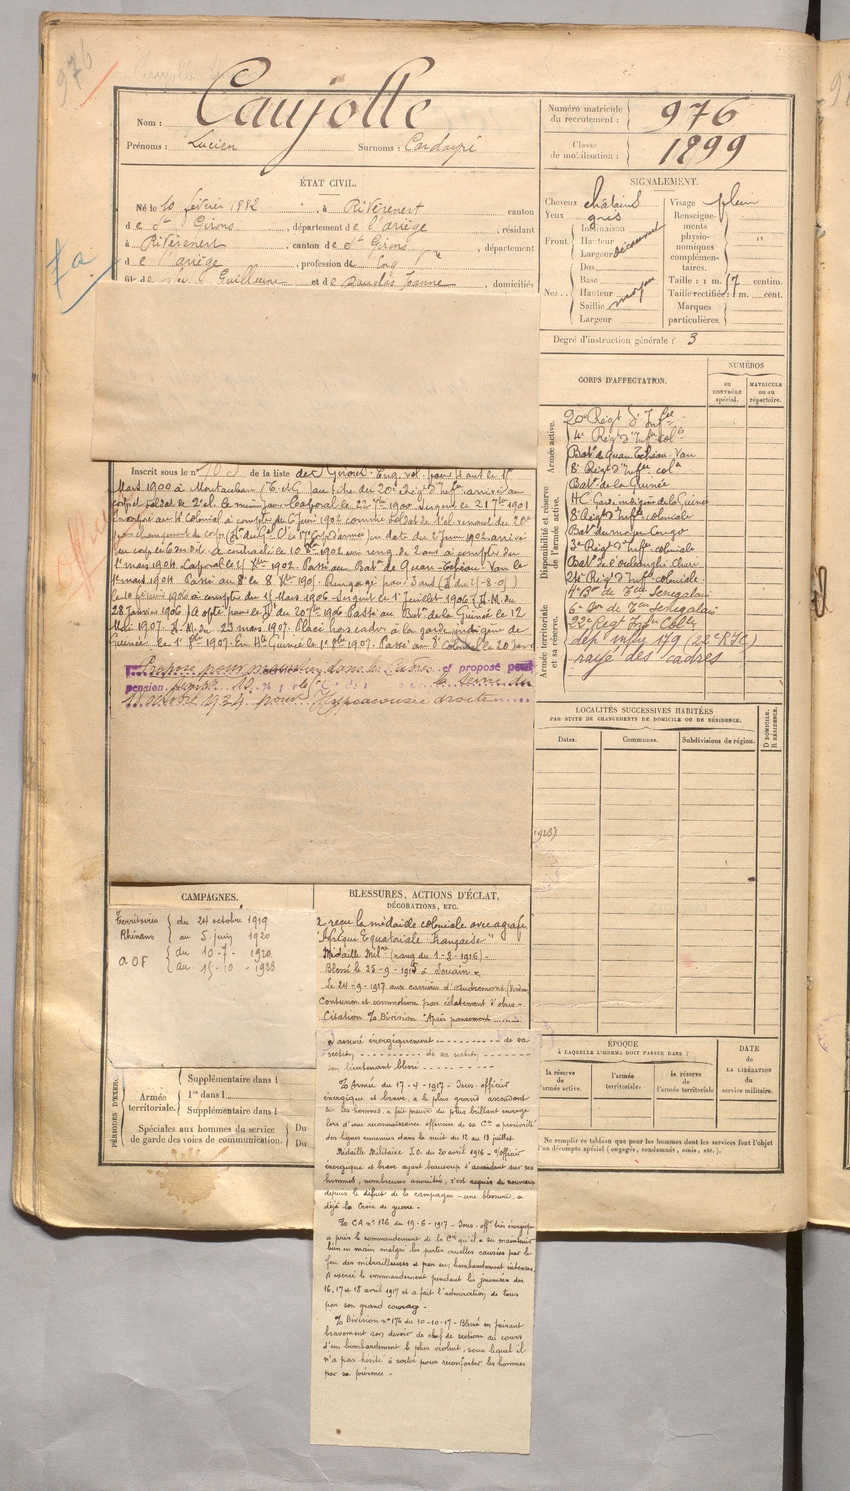 976
Nom : Caujolle
Prénoms : Lucien Surnoms : Cardayré
Numéro matricule du recrutement : 976
Classe de mobilisation : 1899
ÉTAT CIVIL.
Né le 10 février 1882, à Rivèrenert canton
de St Girons, département de l'ariège, résidant
à Rivèrenert, canton de St Girons, département
de l'ariège, profession de
fils de Guillaume et de Jeanne, domiciliés
SIGNALEMENT.
Cheveux châtains
Yeux gris
Front. Inclinaison
Hauteur
Largeur
Nez. Dos
Base
Hauteur
Saillie moyen
Largeur
Visage plein
Renseignements physionomiques complémentaires.
Taille : 1 m. 7 centim.
Taille rectifiée : 1 m. cent.
Marques particulières.
Degré d'instruction générale : 3
CORPS D'AFFECTATION.
NUMÉROS
au contrôle spécial.
matricule ou au répertoire.
Armée active.
Disponibilité et réserve de l'armée active.
Armée territoriale et sa réserve.
20e Régt d'Infie
4e Régt d'Infie colle
Bat. de Quan Tchéou Van
8e Régt d'Infie colle
Bat. de la Guinée
H C Garde indigène de la Guinée
8e Régt d'Infie coloniale
Bat. du moyen Congo
3e Régt d'Infie coloniale
Bat. de l'oubanghi Chari
24e Régt d'Infie coloniale
4e Bon de Tirs Sénégalais
6e Bon de Tirs Sénégalais
22e Régt Infie Colle
dépt infie 179 (22e RIC)
rayé des cadres
Inscrit sous le n° 103 de la liste de St Girons. Eng. vol. pour 4 ans le 1er
Mars 1900 à Montauban (T et G) au titre du 20e Régt d'Infie arrivé au
corps et soldat de 2e cl. le même jour. Caporal le 22 7bre 1900. Sergent le 21 7bre 1901
au corps le dit. A contracté le 10 un reng. de 2 ans à compter du
1er mars 1904. Caporal le Xbre 1902. Passé au Bat. de Quan-Tchéou-Van le
1er mars 1904. Passé au 8e le 8 Xbre 1905. Rengagé pour 3 ans
le 10 à compter du 1er Mars 1906. Sergent le 1er Juillet 1906
28 Janvier 1906 du 20 7bre 1906. Passé au Bat. de la Guinée le 12
Mai 1907. D.M. du 23 mars 1907. Placé hors cadre à la garde indigène de
Guinée le 1er 8bre 1907. En Hte Guinée le 1er 8bre 1907. Passé au 8e Colonial le 20
Proposé pour dans les Cadres et proposé pour
pension la Seine du
11 octobre 1924 pour Hypoacousie droite
LOCALITÉS SUCCESSIVES HABITÉES
PAR SUITE DE CHANGEMENTS DE DOMICILE OU DE RÉSIDENCE.
Dates. Communes. Subdivisions de région. D DOMICILE. R RÉSIDENCE.
1923)
CAMPAGNES.
Territoires Rhénans du 24 octobre 1919
au 5 juin 1920
AOF du 10-7-1920
au 15-10-1923
BLESSURES, ACTIONS D'ÉCLAT,
DÉCORATIONS, ETC.
a reçu la médaille coloniale avec agrafe
Afrique Equatoriale Française
Médaille Milre (rang du 1-8-1916)
Blessé le 25-9-1915 à Souain
Le 24-9-1917 aux carrières d'Haudromont (Verdun
Contusion et commotion par éclatement d'obus
Citation O/ Division "Après pansement
a assuré énergiquement de sa
section de sa section
son lieutenant blessé
O/ Armée du 17-4-1917 - Sous-officier
énergique et brave, a le plus grand ascendant
sur les hommes, a fait preuve du plus brillant courage
lors d'une reconnaissance offensive de sa Cie à proximité
des lignes ennemies dans la nuit du 12 au 13 juillet
Médaille Militaire J.O. du 20 avril 1916 - S/officier
énergique et brave ayant beaucoup d'ascendant sur ses
hommes, nombreuses annuités, s'est acquis de nouveau
depuis le début de la campagne - une blessure, a
déjà la Croix de guerre -
O/ CA n° 126 du 19-6-1917 - Sous-offr très énergique
a pris le commandement de la Cie qu'il a su maintenir
bien en main malgré les pertes cruelles causées par le
feu des mitrailleuses et par un bombardement intense.
A exercé le commandement pendant les journées des
16, 17 et 18 avril 1917 et a fait l'admiration de tous
par son grand courage -
O/ Division n° 176 du 10-10-17 - Blessé en faisant
bravement son devoir de chef de section au cours
d'un bombardement le plus violent, sous lequel il
n'a pas hésité à sortir pour réconforter les hommes
par sa présence -
PÉRIODES D'EXERC
Armée territoriale.
Supplémentaire dans l
1re dans l
Supplémentaire dans l
Spéciales aux hommes du service de garde des voies de communication.
Du
Du
ÉPOQUE
À LAQUELLE L'HOMME DOIT PASSER DANS :
la réserve de l'armée active.
l'armée territoriale.
la réserve de l'armée territoriale
DATE
de LA LIBÉRATION
du service militaire.
Ne remplir ce tableau que pour les hommes dont les services font l'objet
d'un décompte spécial (engagés, condamnés, omis, etc.).